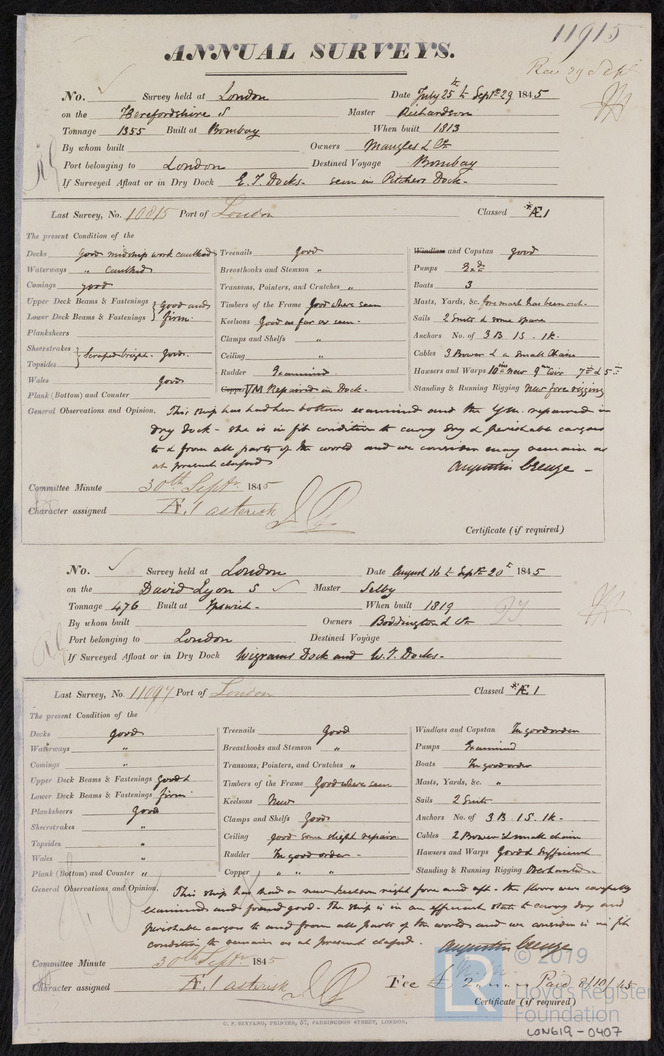 11915
ANNUAL SURVEYS.
Rec 29 Sept
No. Survey held at London Date July 25th to Septr 29 1845
on the Herefordshire S Master Richardson
Tonnage 1355 Built at Bombay When built 1813
By whom built Owners Mangles & Co
Port belonging to London Destined Voyage Bombay
If Surveyed Afloat or in Dry Dock E. I. Docks - seen in Pitchers Dock -
Last Survey, No. 10815 Port of London Classed *Æ 1
The present Condition of the
Decks Good midship work caulked
Waterways " caulked
Comings good
Upper Deck Beams & Fastenings } Good and
Lower Deck Beams & Fastenings } firm
Planksheers
Sheerstrakes } Scraped bright - Good -
Topsides
Wales Good
Plank (Bottom) and Counter
Treenails Good
Breasthooks and Stemson "
Transoms, Pointers, and Crutches "
Timbers of the Frame Good where seen
Keelsons Good as far as seen -
Clamps and Shelfs "
Ceiling "
Rudder Examined
Copper YM Repaired in Dock -
Windlass and Capstan good
Pumps
Boats 3
Masts, Yards, &c. fore mast has been out -
Sails 2 Suits & some spare
Anchors No. of 3 B. 1 S. 1 K -
Cables 3 Bower & a small Chain
Hawsers and Warps 10 in new 9 7 & 5
Standing & Running Rigging New fore rigging
General Observations and Opinion. This ship has had her bottom examined and the Y.M. repaired in
dry dock - she is in fit condition to carry dry & perishable cargoes
to & from all parts of the world and we consider may remain as
at present classed
Augustin Creuze -
Committee Minute 30th Septr 1845
Character assigned Æ. 1 asterisk
Certificate (if required)
No. Survey held at London Date August 16 to Septr 20 1845
on the David Lyon S Master Selby
Tonnage 476 Built at Ipswich - When built 1819
By whom built Owners Boddington & Co
Port belonging to London Destined Voyage
If Surveyed Afloat or in Dry Dock Wigrams Dock and W. I. Docks -
Last Survey, No. 11097 Port of London Classed *Æ 1
The present Condition of the
Decks good
Waterways "
Comings "
Upper Deck Beams & Fastenings Good &
Lower Deck Beams & Fastenings firm
Planksheers Good
Sheerstrakes "
Topsides "
Wales "
Plank (Bottom) and Counter "
Treenails Good
Breasthooks and Stemson "
Transoms, Pointers, and Crutches "
Timbers of the Frame Good where seen
Keelsons New
Clamps and Shelfs Good
Ceiling good some slight repair -
Rudder In good order -
Copper " " "
Windlass and Capstan In good order
Pumps Examined
Boats In good order
Masts, Yards, &c. "
Sails 2 Suits
Anchors No. of 3 B. 1 S. 1 K -
Cables 2 Bower & small chain
Hawsers and Warps Good & Sufficient
Standing & Running Rigging Overhauled -
General Observations and Opinion. This ship has had a new keelson right fore and aft - the floors were carefully
examined and found good - The ship is in an efficient state to carry dry and
perishable cargoes to and from all parts of the world and we consider is in fit
condition to remain as at present classed.
Augustin Creuze
Committee Minute 30th Septr 1845
Character assigned Æ. 1 asterisk
Fee £ 2 Paid 8/10/45
Certificate (if required)
C. F. SEYFANG, PRINTER, 57, FARRINGDON STREET, LONDON.
LR © 2019
Lloyd's Register
Foundation
LON619-0407